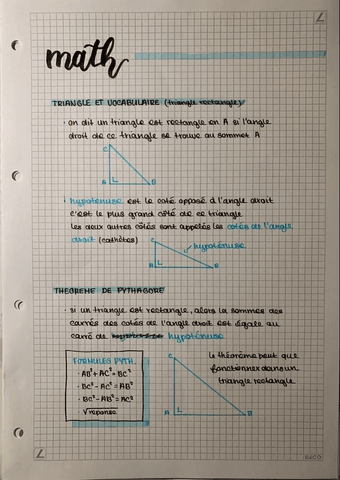 math
TRIANGLE ET VOCABULAIRE (triangle rectangle)
· on dit un triangle est rectangle en A si l'angle
droit de ce triangle se trouve au sommet A
C
A B
· hypoténuse est le coté opposé à l'angle droit
c'est le plus grand côté de ce triangle
les deux autres côtés sont appelés les cotés de l'angle
droit (cathètes)
C hypoténuse
A B
THEOREME DE PYTHAGORE
· si un triangle est rectangle, alors la sommes des
carrés des cotés de l'angle droit est égale au
carré de hypoténuse
FORMULES PYTH.
· AB² + AC² = BC²
· BC² - AC² = AB²
· BC² - AB² = AC²
· √reponse
C
A B
le théorème peut que
fonctionner dans un
triangle rectangle